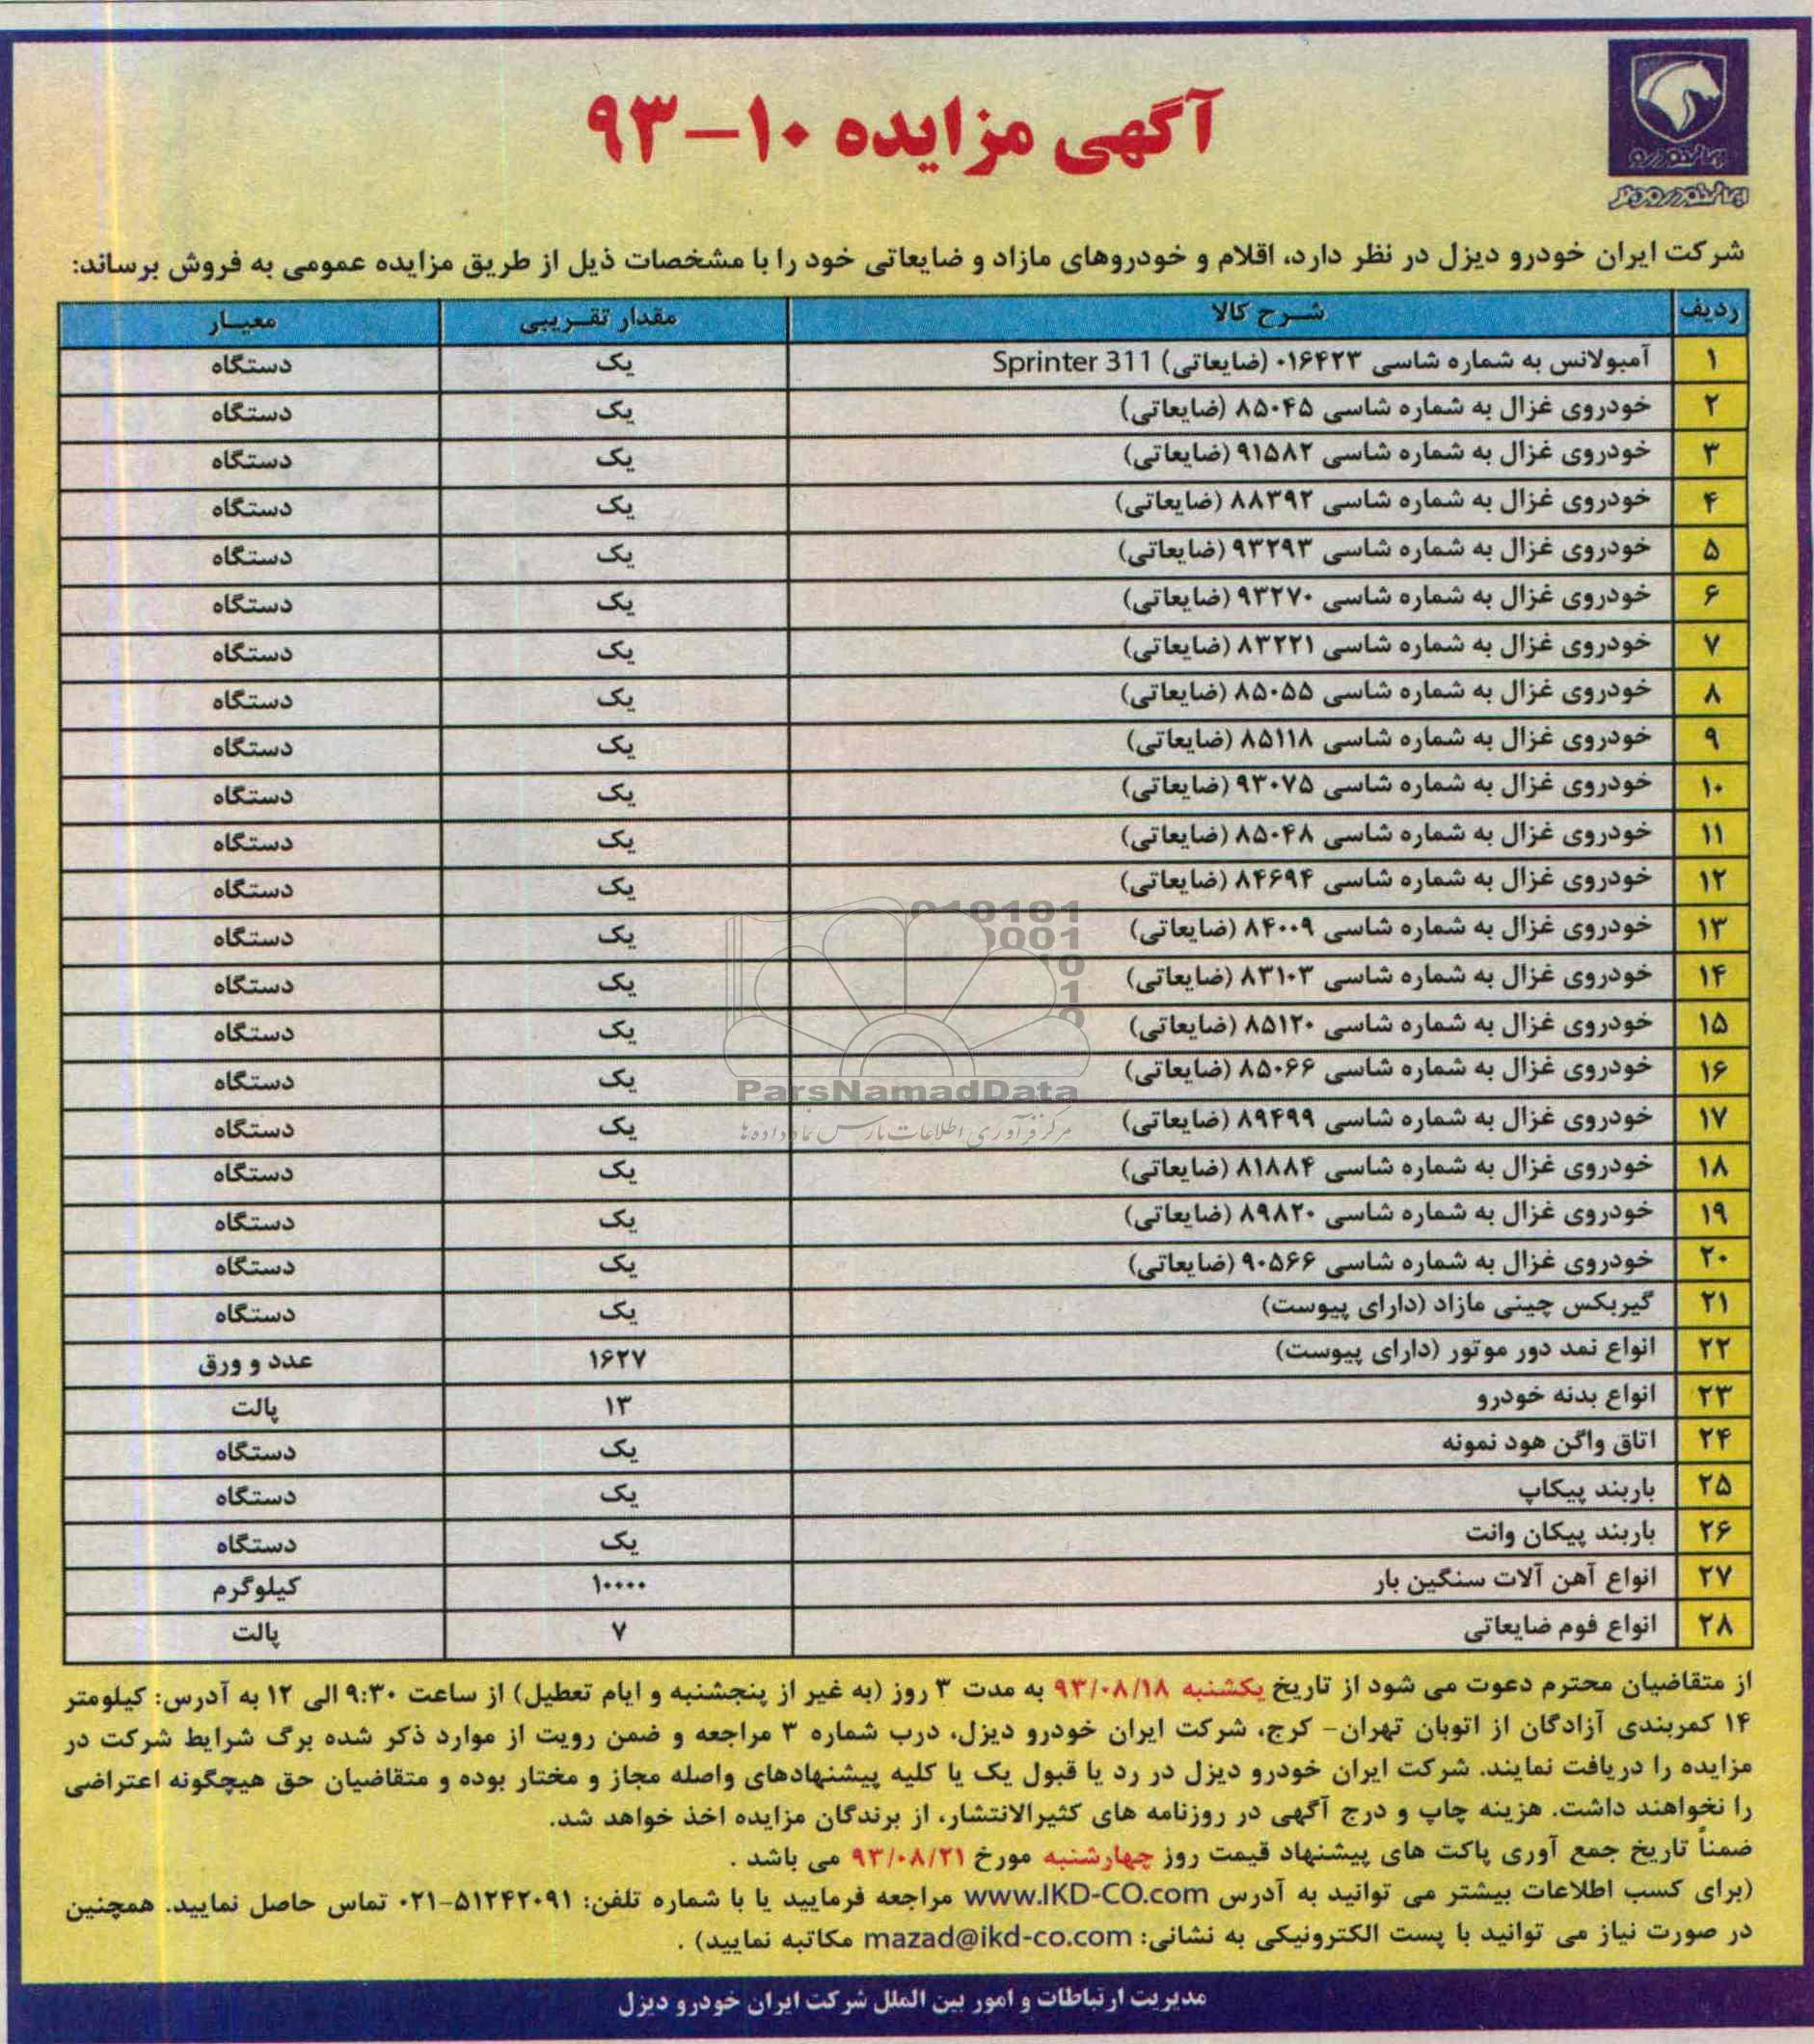 آگهی مزایده ۱۰–۹۳
ایران خودرو
ایران خودرو دیزل
شرکت ایران خودرو دیزل در نظر دارد، اقلام و خودروهای مازاد و ضایعاتی خود را با مشخصات ذیل از طریق مزایده عمومی به فروش برساند:
ردیف شـرح کالا مقدار تقـریبی معیـار
۱ آمبولانس به شماره شاسی ۰۱۶۴۲۳ (ضایعاتی) Sprinter 311 یک دستگاه
۲ خودروی غزال به شماره شاسی ۸۵۰۴۵ (ضایعاتی) یک دستگاه
۳ خودروی غزال به شماره شاسی ۹۱۵۸۲ (ضایعاتی) یک دستگاه
۴ خودروی غزال به شماره شاسی ۸۸۳۹۲ (ضایعاتی) یک دستگاه
۵ خودروی غزال به شماره شاسی ۹۳۲۹۳ (ضایعاتی) یک دستگاه
۶ خودروی غزال به شماره شاسی ۹۳۲۷۰ (ضایعاتی) یک دستگاه
۷ خودروی غزال به شماره شاسی ۸۳۲۲۱ (ضایعاتی) یک دستگاه
۸ خودروی غزال به شماره شاسی ۸۵۰۵۵ (ضایعاتی) یک دستگاه
۹ خودروی غزال به شماره شاسی ۸۵۱۱۸ (ضایعاتی) یک دستگاه
۱۰ خودروی غزال به شماره شاسی ۹۳۰۷۵ (ضایعاتی) یک دستگاه
۱۱ خودروی غزال به شماره شاسی ۸۵۰۴۸ (ضایعاتی) یک دستگاه
۱۲ خودروی غزال به شماره شاسی ۸۴۶۹۴ (ضایعاتی) یک دستگاه
۱۳ خودروی غزال به شماره شاسی ۸۴۰۰۹ (ضایعاتی) یک دستگاه
۱۴ خودروی غزال به شماره شاسی ۸۳۱۰۳ (ضایعاتی) یک دستگاه
۱۵ خودروی غزال به شماره شاسی ۸۵۱۲۰ (ضایعاتی) یک دستگاه
۱۶ خودروی غزال به شماره شاسی ۸۵۰۶۶ (ضایعاتی) یک دستگاه
۱۷ خودروی غزال به شماره شاسی ۸۹۴۹۹ (ضایعاتی) یک دستگاه
۱۸ خودروی غزال به شماره شاسی ۸۱۸۸۴ (ضایعاتی) یک دستگاه
۱۹ خودروی غزال به شماره شاسی ۸۹۸۲۰ (ضایعاتی) یک دستگاه
۲۰ خودروی غزال به شماره شاسی ۹۰۵۶۶ (ضایعاتی) یک دستگاه
۲۱ گیربکس چینی مازاد (دارای پیوست) یک دستگاه
۲۲ انواع نمد دور موتور (دارای پیوست) ۱۶۲۷ عدد و ورق
۲۳ انواع بدنه خودرو ۱۳ پالت
۲۴ اتاق واگن هود نمونه یک دستگاه
۲۵ باربند پیکاپ یک دستگاه
۲۶ باربند پیکان وانت یک دستگاه
۲۷ انواع آهن آلات سنگین بار ۱۰۰۰۰ کیلوگرم
۲۸ انواع فوم ضایعاتی ۷ پالت
ParsNamadData
مرکز فرآوری اطلاعات پارس نماد داده ها
از متقاضیان محترم دعوت می شود از تاریخ یکشنبه ۹۳/۰۸/۱۸ به مدت ۳ روز (به غیر از پنجشنبه و ایام تعطیل) از ساعت ۹:۳۰ الی ۱۲ به آدرس: کیلومتر
۱۴ کمربندی آزادگان از اتوبان تهران- کرج، شرکت ایران خودرو دیزل، درب شماره ۳ مراجعه و ضمن رویت از موارد ذکر شده برگ شرایط شرکت در
مزایده را دریافت نمایند. شرکت ایران خودرو دیزل در رد یا قبول یک یا کلیه پیشنهادهای واصله مجاز و مختار بوده و متقاضیان حق هیچگونه اعتراضی
را نخواهند داشت. هزینه چاپ و درج آگهی در روزنامه های کثیرالانتشار، از برندگان مزایده اخذ خواهد شد.
ضمناً تاریخ جمع آوری پاکت های پیشنهاد قیمت روز چهارشنبه مورخ ۹۳/۰۸/۲۱ می باشد .
(برای کسب اطلاعات بیشتر می توانید به آدرس www.IKD-CO.com مراجعه فرمایید یا با شماره تلفن: ۵۱۲۴۲۰۹۱–۰۲۱ تماس حاصل نمایید. همچنین
در صورت نیاز می توانید با پست الکترونیکی به نشانی: mazad@ikd-co.com مکاتبه نمایید) .
مدیریت ارتباطات و امور بین الملل شرکت ایران خودرو دیزل